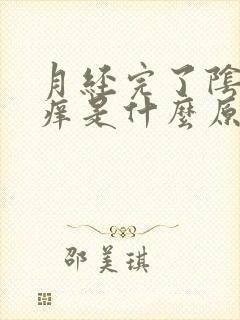 月经完了陰
痒是什麼原
邵美琪